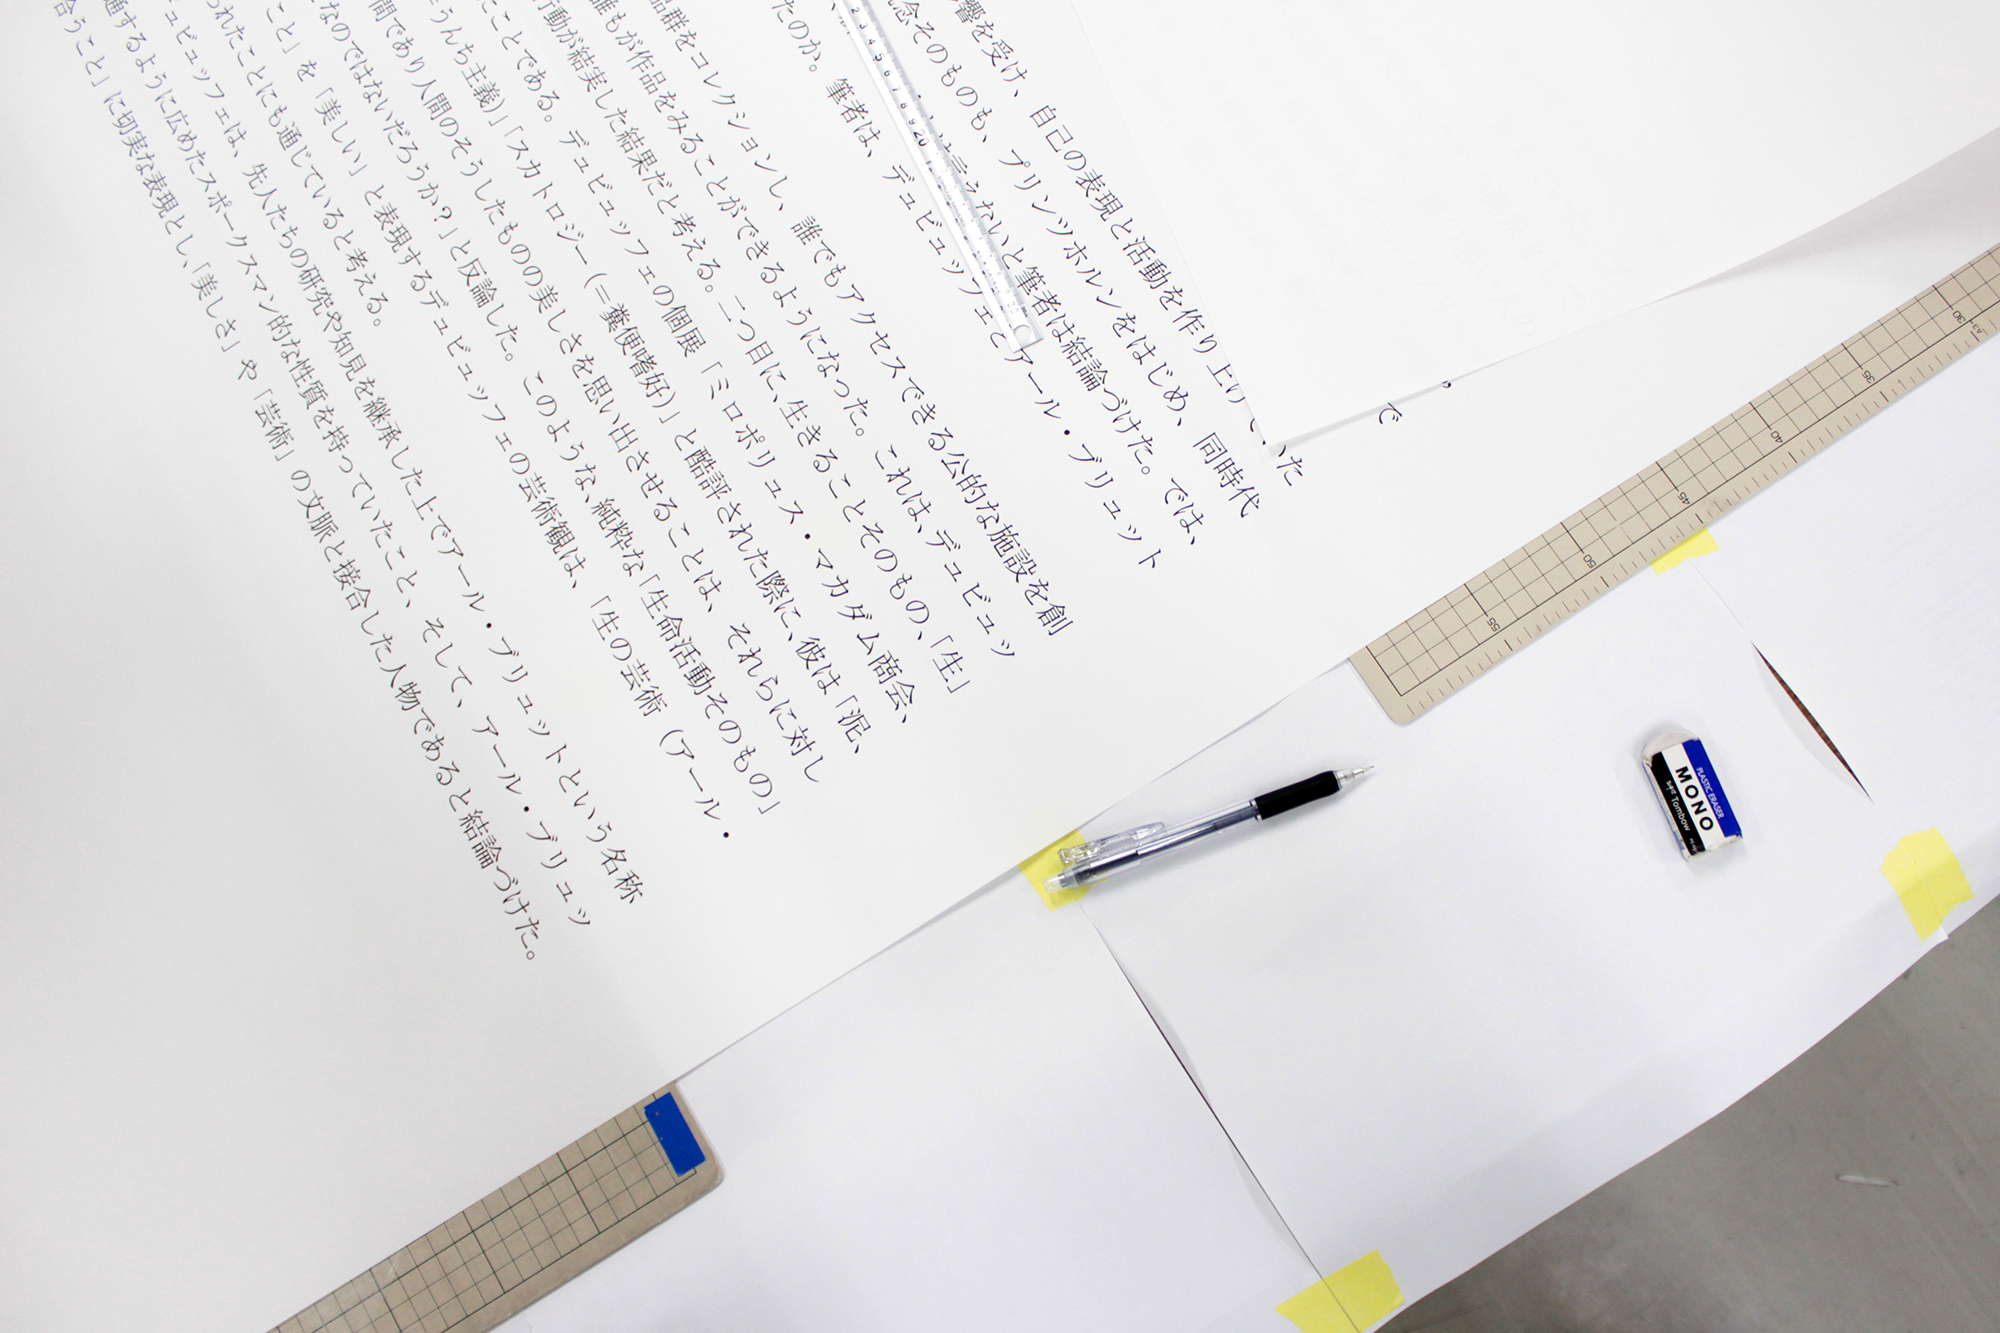 で
響を受け、自己の表現と活動を作り上げていった
念そのものも、プリンツホルンをはじめ、同時代
ないと筆者は結論づけた。では、
たのか。筆者は、デュビュッフェとアール・ブリュット
品群をコレクションし、誰でもアクセスできる公的な施設を創
誰もが作品をみることができるようになった。これは、デュビュッ
行動が結実した結果だと考える。二つ目に、生きることそのもの、「生」
たことである。デュビュッフェの個展「ミロポリュス・マカダム商会、
うんち主義)」「スカトロジー(=糞便嗜好)」と酷評された際に、彼は「泥、
間であり人間のそうしたものの美しさを思い出させることは、それらに対し
なのではないだろうか?」と反論した。このような、純粋な「生命活動そのもの」
こと」を「美しい」と表現するデュビュッフェの芸術観は、「生の芸術（アール・
られたことにも通じていると考える。
ュビュッフェは、先人たちの研究や知見を継承した上でアール・ブリュットという名称
通するように広めたスポークスマン的な性質を持っていたこと、そして、アール・ブリュッ
合うこと」に切実な表現とし、「美しさ」や「芸術」の文脈と接合した人物であると結論づけた。
2 3 4 5 6 7 8 9 20
30 35 40 45 50 55
PLASTIC ERASER
MONO
Tombow